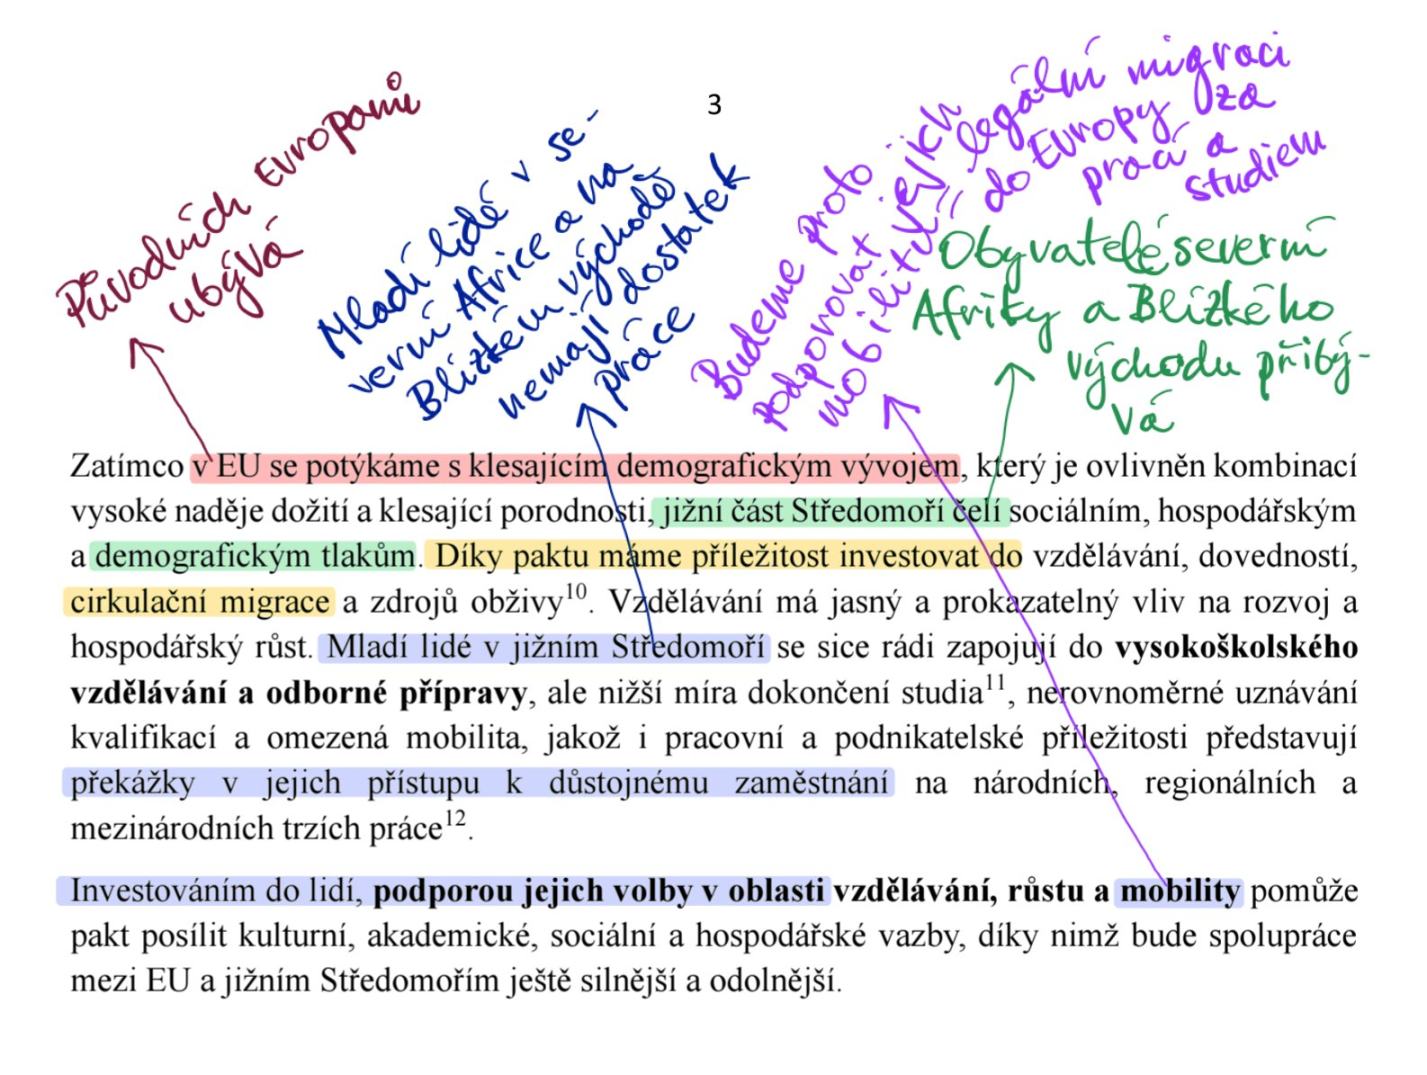 3
Původních Evropanů
ubývá
Mladí lidé v se-
verní Africe a na
Blízkém východě
nemají dostatek
práce
Budeme proto
podporovat jejich
mobilitu,
legální migraci
do Evropy za
prací a
studiem
Obyvatelé severní
Afriky a Blízkého
východu přibý-
vá
Zatímco v EU se potýkáme s klesajícím demografickým vývojem, který je ovlivněn kombinací
vysoké naděje dožití a klesající porodnosti, jižní část Středomoří čelí sociálním, hospodářským
a demografickým tlakům. Díky paktu máme příležitost investovat do vzdělávání, dovedností,
cirkulační migrace a zdrojů obživy10. Vzdělávání má jasný a prokazatelný vliv na rozvoj a
hospodářský růst. Mladí lidé v jižním Středomoří se sice rádi zapojují do vysokoškolského
vzdělávání a odborné přípravy, ale nižší míra dokončení studia11, nerovnoměrné uznávání
kvalifikací a omezená mobilita, jakož i pracovní a podnikatelské příležitosti představují
překážky v jejich přístupu k důstojnému zaměstnání na národních, regionálních a
mezinárodních trzích práce12.
Investováním do lidí, podporou jejich volby v oblasti vzdělávání, růstu a mobility pomůže
pakt posílit kulturní, akademické, sociální a hospodářské vazby, díky nimž bude spolupráce
mezi EU a jižním Středomořím ještě silnější a odolnější.